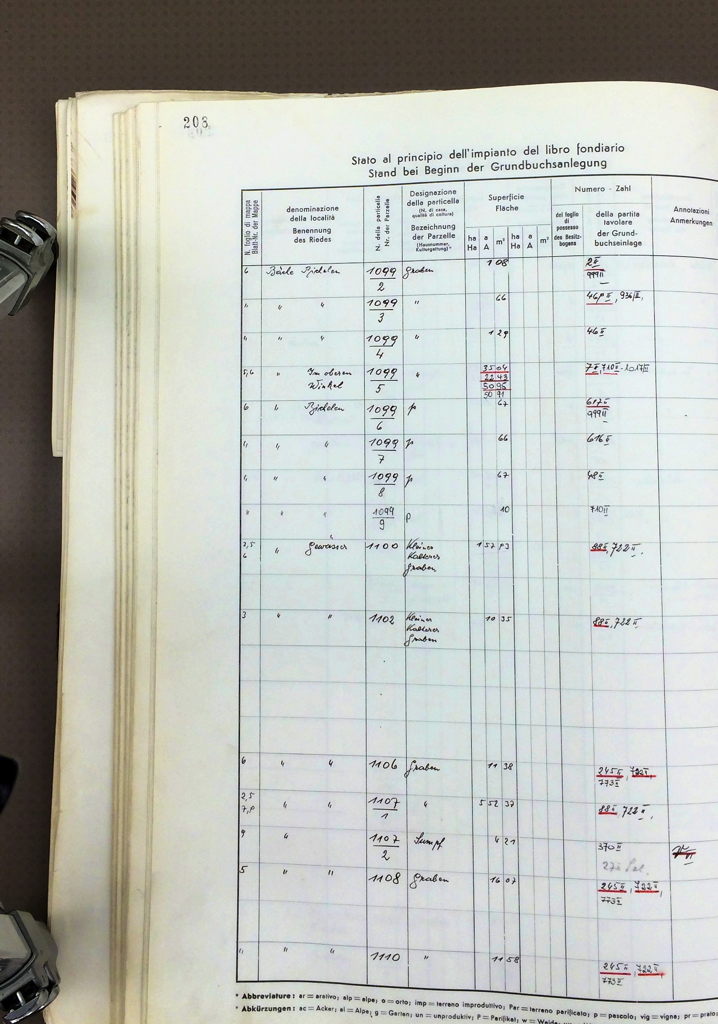 203
Stato al principio dell'impianto del libro fondiario
Stand bei Beginn der Grundbuchsanlegung
N. foglio di mappa
Blatt-Nr. der Mappe
denominazione
della località
Benennung
des Riedes
N. della particella
Nr. der Parzelle
Designazione
della particella
(N. di casa,
qualità di coltura)
Bezeichnung
der Parzelle
(Hausnummer,
Kulturgattung)*
Superficie
Fläche
ha a m² ha a m²
Ha A Ha A
Numero - Zahl
del foglio
di
possesso
des Besitz-
bogens
della partita
tavolare
der Grund-
buchseinlage
Annotazioni
Anmerkungen
6 1099/2 Graben 1 08 2 II
999 II
" " " 1099/3 " 66 936/II,
" " " 1099/4 " 1 29 46 II
5,6 " Im oberen 1099/5 " 35 04 7 II, 710 II - 1017/II
Winkel 22 43
50 95
50 91
6 " 1099/6 p 67 617 II
999 II
" " " 1099/7 p 66 616 II
" " " 1099/8 p 67 48 II
" " " 1099/9 p 10 710 II
2,5 " Gewässer 1100 Kleiner 1 57 93 88 II, 722 II.
6 Kalterer
Graben
3 " " 1102 Kleiner 10 35 88 II, 722 II
Kalterer
Graben
6 " " 1106 Graben 11 38 245 II, 722 II
773 II
2,5 " " 1107/1 " 5 52 37 88 II, 722 II,
7,8
9 " 1107/2 Sumpf 4 21 370 II
5 " " 1108 Graben 16 07 245 II, 722 II,
773 II
" " " 1110 " 11 58 245 II, 722 II
773 II
* Abbreviature: ar = arativo; alp = alpe; o = orto; imp = terreno improduttivo; Par = terreno parificato; p = pascolo; vig = vigna; pr = prato
* Abkürzungen: ac = Acker; al = Alpe; g = Garten; un = unproduktiv; P = Parifikat; w = Weide